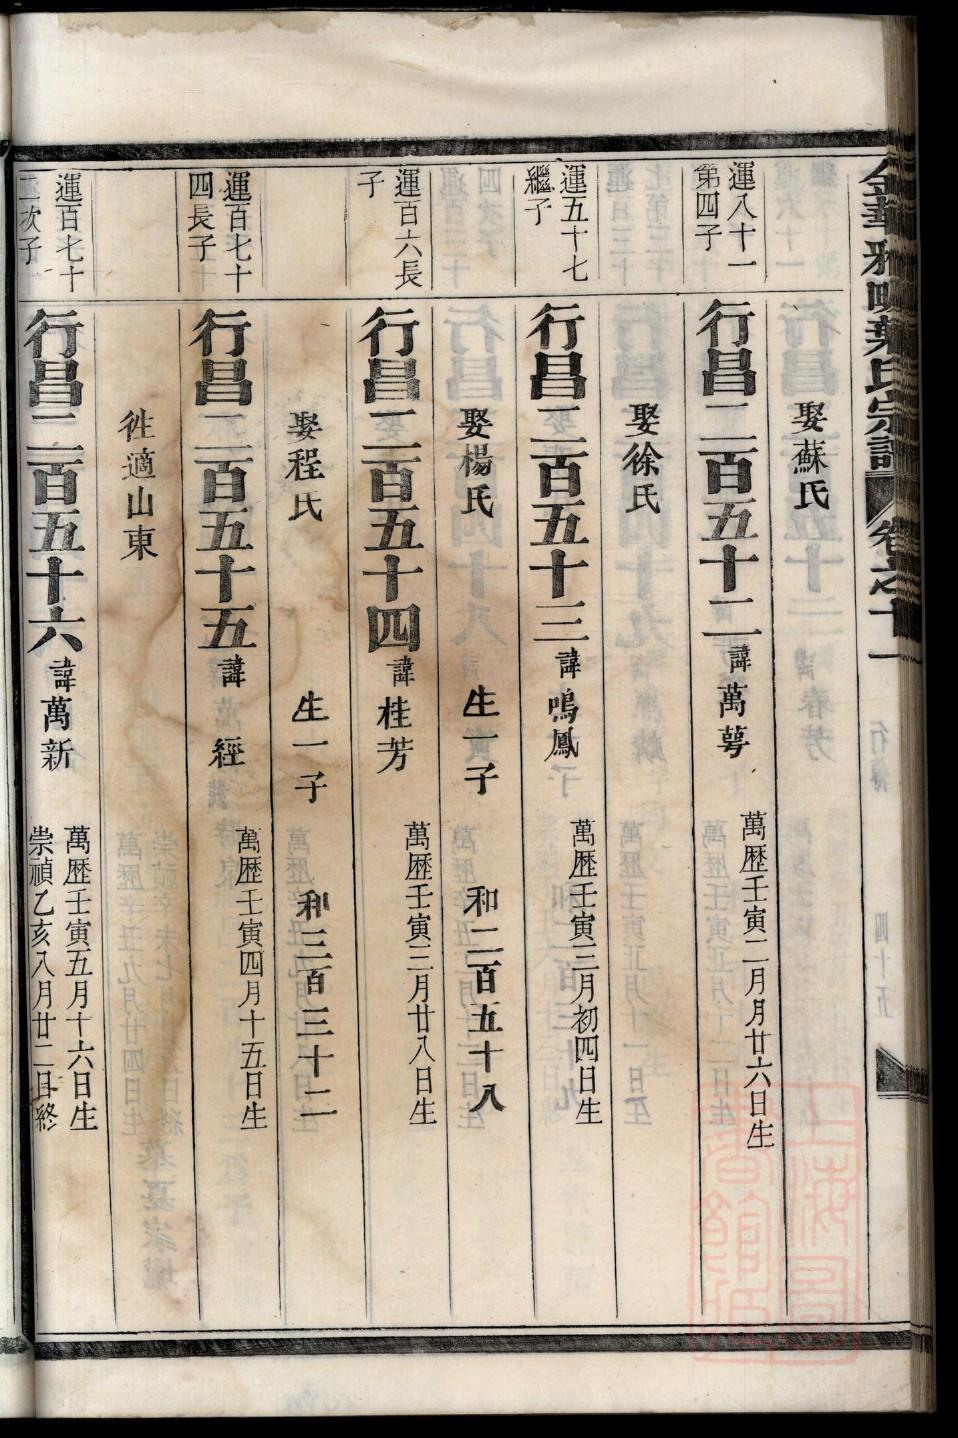 金華雅畈葉氏宗譜
卷之十一
行傳
四十五
娶蘇氏
運八十一第四子
行昌二百五十二
諱萬萼
萬歷壬寅二月廿六日生
娶徐氏
運五十七繼子
行昌二百五十三
諱鳴鳳
萬歷壬寅三月初四日生
娶楊氏
生一子
和二百五十八
運百六長子
行昌二百五十四
諱桂芳
萬歷壬寅三月廿八日生
娶程氏
生一子
和三百三十二
運百七十四長子
行昌二百五十五
諱經
萬歷壬寅四月十五日生
徃適山東
運百七十
次子
行昌二百五十六
諱萬新
萬歷壬寅五月十六日生
崇禎乙亥八月廿二日終
上海圖書館藏